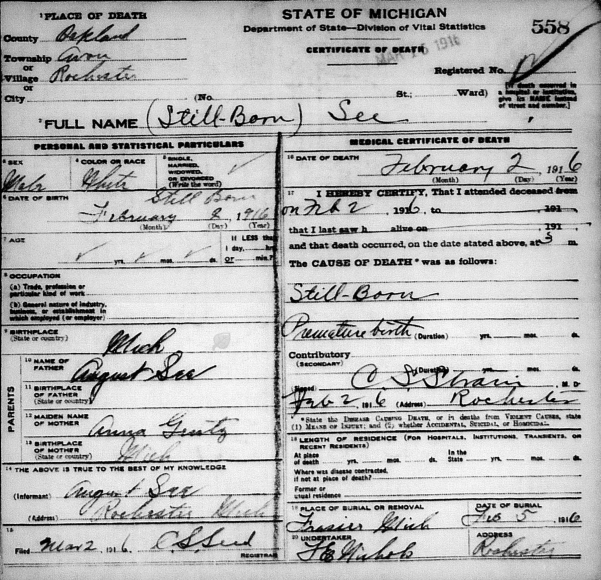 ¹PLACE OF DEATH
County Oakland
Township Avon
or
Village Rochester
or
City (No. St.; Ward)
STATE OF MICHIGAN
Department of State—Division of Vital Statistics
CERTIFICATE OF DEATH
MAR 15 1916
558
Registered No.
[If death occurred in a hospital or institution, give its NAME instead of street and number.]
²FULL NAME (Still-Born) See
PERSONAL AND STATISTICAL PARTICULARS
³SEX
Male
⁴COLOR OR RACE
White
⁵SINGLE, MARRIED, WIDOWED, OR DIVORCED
(Write the word)
Still Born
⁶DATE OF BIRTH
February 2 1916
(Month) (Day) (Year)
⁷AGE
yrs. mos. ds.
If LESS than 1 day, hrs. or min.?
⁸OCCUPATION
(a) Trade, profession or particular kind of work
(b) General nature of industry, business, or establishment in which employed (or employer)
⁹BIRTHPLACE
(State or country)
Mich
PARENTS
¹⁰NAME OF FATHER
August See
¹¹BIRTHPLACE OF FATHER
(State or country)
¹²MAIDEN NAME OF MOTHER
Anna
¹³BIRTHPLACE OF MOTHER
(State or country)
Mich
¹⁴THE ABOVE IS TRUE TO THE BEST OF MY KNOWLEDGE
(Informant) August See
(Address) Rochester Mich
¹⁵
Filed Mar 2 1916 C.S.
REGISTRAR
MEDICAL CERTIFICATE OF DEATH
¹⁶DATE OF DEATH
February 2 1916
(Month) (Day) (Year)
¹⁷I HEREBY CERTIFY, That I attended deceased from
on Feb 2 1916, to 191
that I last saw h alive on 191
and that death occurred, on the date stated above, at 5 m.
The CAUSE OF DEATH * was as follows:
Still-Born
Premature birth
(Duration) yrs. mos. ds.
Contributory
(SECONDARY)
(Duration) yrs. mos. ds.
(Signed) C. S. Strain M. D.
Feb 2, 1916 (Address) Rochester
*State the DISEASE CAUSING DEATH, or in deaths from VIOLENT CAUSES, state (1) MEANS OF INJURY; and (2) whether ACCIDENTAL, SUICIDAL, or HOMICIDAL.
¹⁸LENGTH OF RESIDENCE (FOR HOSPITALS, INSTITUTIONS, TRANSIENTS, OR RECENT RESIDENTS)
At place of death yrs. mos. ds. In the State yrs. mos. ds.
Where was disease contracted, if not at place of death?
Former or usual residence
¹⁹PLACE OF BURIAL OR REMOVAL
Frasier Mich
DATE OF BURIAL
Feb 5 1916
²⁰UNDERTAKER
Nichols
ADDRESS
Rochester